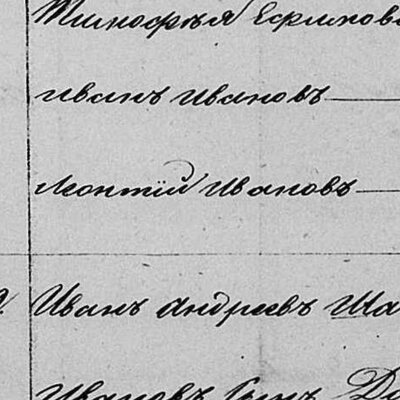 Тимофѣя Ефимов
Иванъ Ивановъ
Леонтій Ивановъ
Иванъ Андреевъ Ша
Ивановъ Сынъ